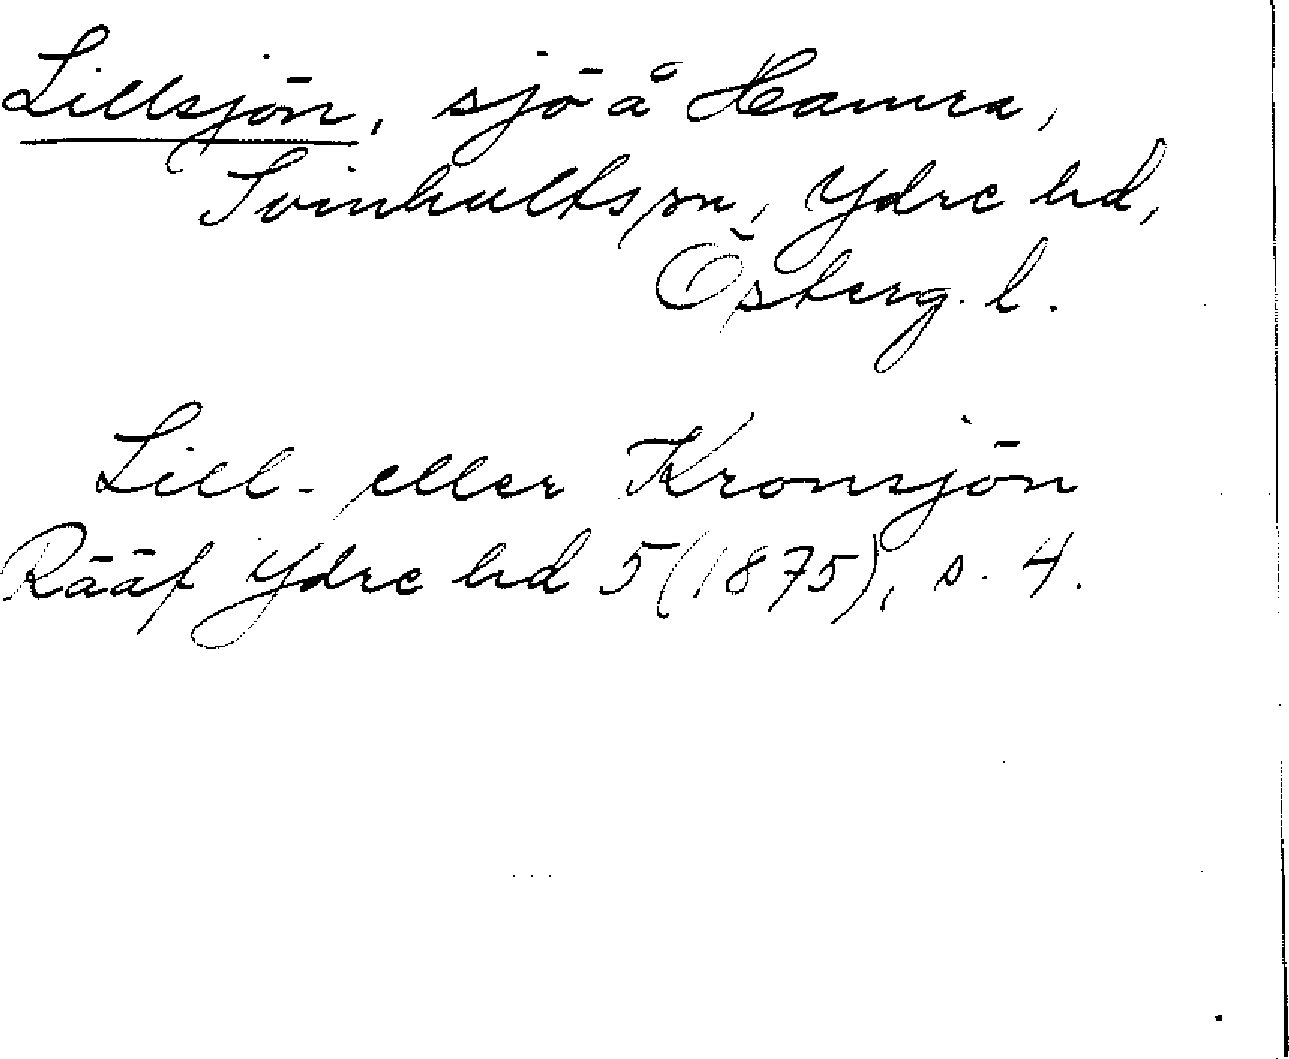 Lillsjön, sjö å Hamra,
Svinhults sn, Ydre hd,
Österg. l.
Lill- eller Kronsjön
Rääf Ydre hd 5 (1875), s. 4.